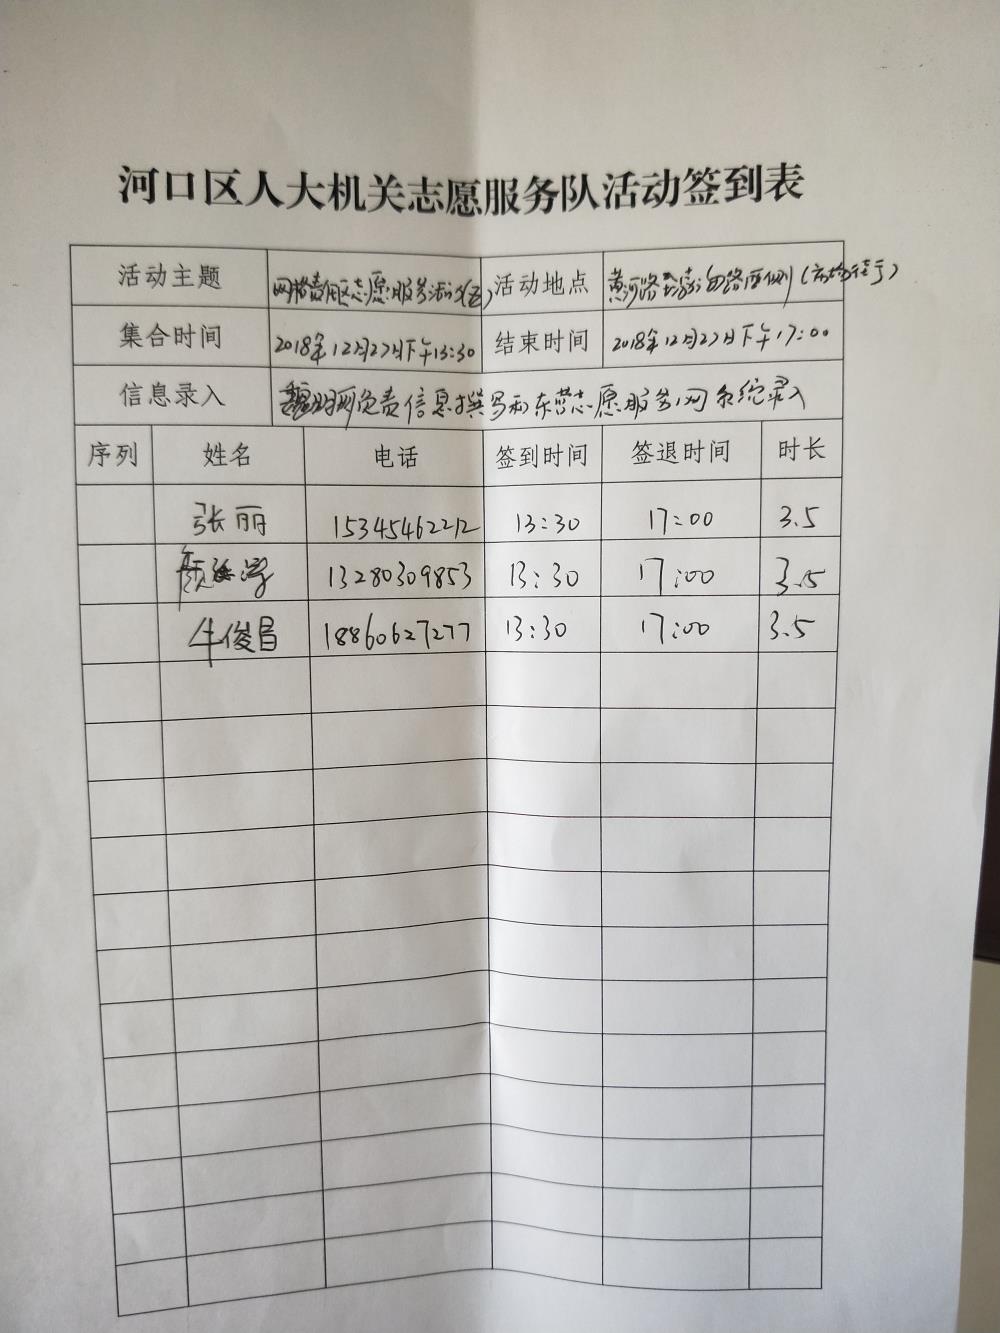 河口区人大机关志愿服务队活动签到表
活动主题 网格责任区志愿服务活动(五) 活动地点 黄河路至渤海路西侧(
集合时间 2018年12月27日下午13:30 结束时间 2018年12月27日下午17:00
信息录入 负责信息撰写和东营志愿服务网系统录入
序列 姓名 电话 签到时间 签退时间 时长
张丽 15345462212 13:30 17:00 3.5
颜 13280309853 13:30 17:00 3.5
牛俊昌 18860627277 13:30 17:00 3.5